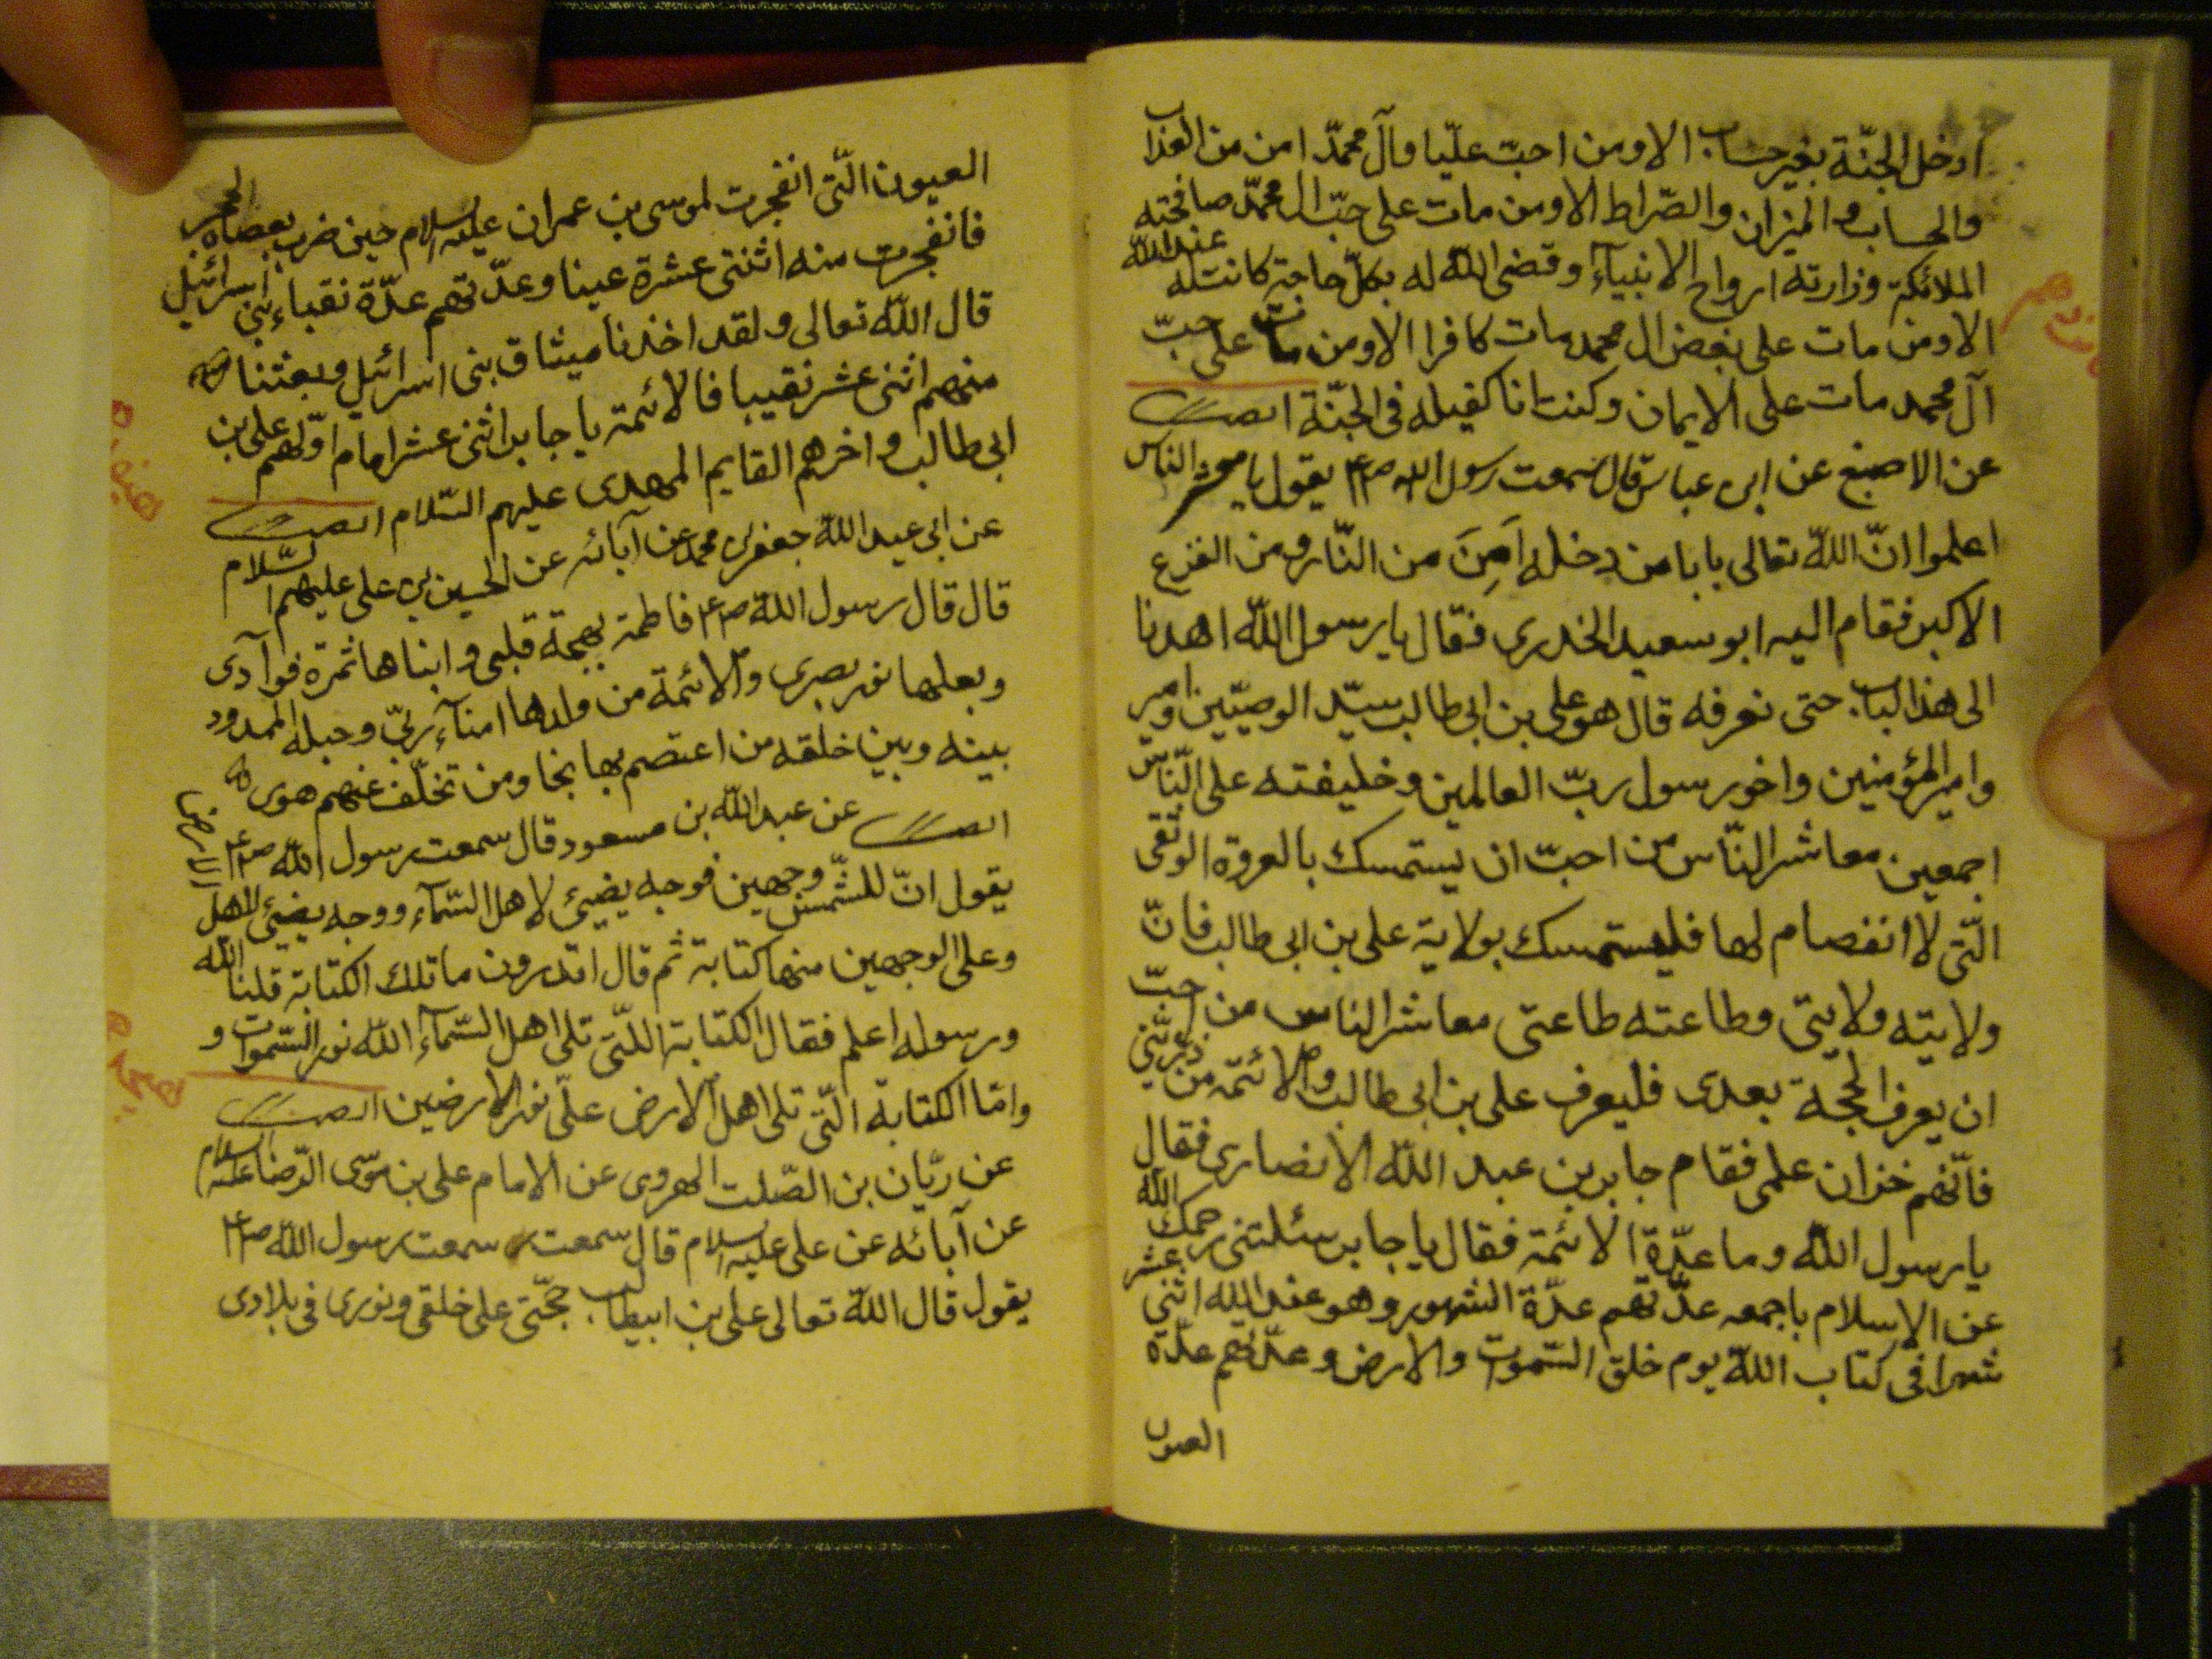 ادخل الجنّة بغير حساب الا ومن احبّ عليّا وآل محمّد امن من العذاب
والحساب والميزان والصّراط الا ومن مات على حبّ ال محمّد صافحته
الملائكة وزارته ارواح الانبيآء وقضى اللّه له بكلّ حاجة كانت له عند اللّه
الا ومن مات على بغض ال محمد مات كافرا الا ومن مات على حبّ
آل محمد مات على الايمان وكنت انا كفيله فى الجنّة
عن الاصبغ عن ابن عباس قال سمعت رسول اللّه يقول يا معشر الناس
اعلموا انّ اللّه تعالى بابا من دخله اَمِنَ من النّار ومن الفزع
الاكبر فقام اليه ابو سعيد الخدرى فقال يا رسول اللّه اهدنا
الى هذا الباب حتى نعرفه قال هو على بن ابى طالب سيّد الوصيّين وامير
وامير المؤمنين واخو رسول ربّ العالمين وخليفته على النّاس
اجمعين معاشر النّاس من احبّ ان يستمسك بالعروة الوثقى
الّتى لا انفصام لها فليستمسك بولاية على بن ابى طالب فانّ
ولايته ولايتى وطاعته طاعتى معاشر الناس من احبّ
ان يعرف الحجة بعدى فليعرف على بن ابى طالب والائمّة من ذرّيّتي
فانّهم خزان علمى فقام جابر بن عبد اللّه الانصارى فقال
يا رسول اللّه وما عدّة الائمة فقال يا جابر سئلتنى رحمك اللّه
عن الاسلام باجمعه عدّتهم عدّة الشهور وهو عند اللّه اثنى عشر
شهرا فى كتاب اللّه يوم خلق السّموات والارض وعدّتهم عدّة
العيون
العيون الّتى انفجرت لموسى بن عمران عليه السلام حين ضرب بعصاه الحجر
فانفجرت منه اثنتى عشرة عينا وعدّتهم عدّة نقباء بنى اسرائيل
قال اللّه تعالى ولقد اخذنا ميثاق بنى اسرائيل وبعثنا
منهم اثنى عشر نقيبا فالائمة يا جابر اثنى عشر امام اوّلهم على بن
ابى طالب واخرهم القايم المهدى عليهم السّلام
عن ابى عبد اللّه جعفر بن محمد عن آبائه عن الحسين بن على عليهم السّلام
قال قال رسول اللّه فاطمة بهجة قلبى وابناها ثمرة فوآدى
وبعلها نور بصرى والائمة من ولدها امنآء ربّى وحبله الممدود
بينه وبين خلقه من اعتصم بها نجا ومن تخلّف عنهم هوى
عن عبد اللّه بن مسعود قال سمعت رسول اللّه
يقول انّ للشّمس وجهين فوجه يضيئ لاهل السّمآء ووجه يضيئ لاهل الارض
وعلى الوجهين منها كتابة ثم قال اتدرون ما تلك الكتابة قلنا اللّه
ورسوله اعلم فقال الكتابة اللّتى تلى اهل السّمآء اللّه نور السّموات و
وامّا الكتابة الّتى تلى اهل الارض علىّ نور الارضين
عن ريّان بن الصّلت الهروى عن الامام على بن موسى الرّضا عليه السلام
عن آبائه عن على عليه السلام قال سمعت سمعت رسول اللّه
يقول قال اللّه تعالى على بن ابيطالب حجّتى على خلقى ونورى فى بلادى